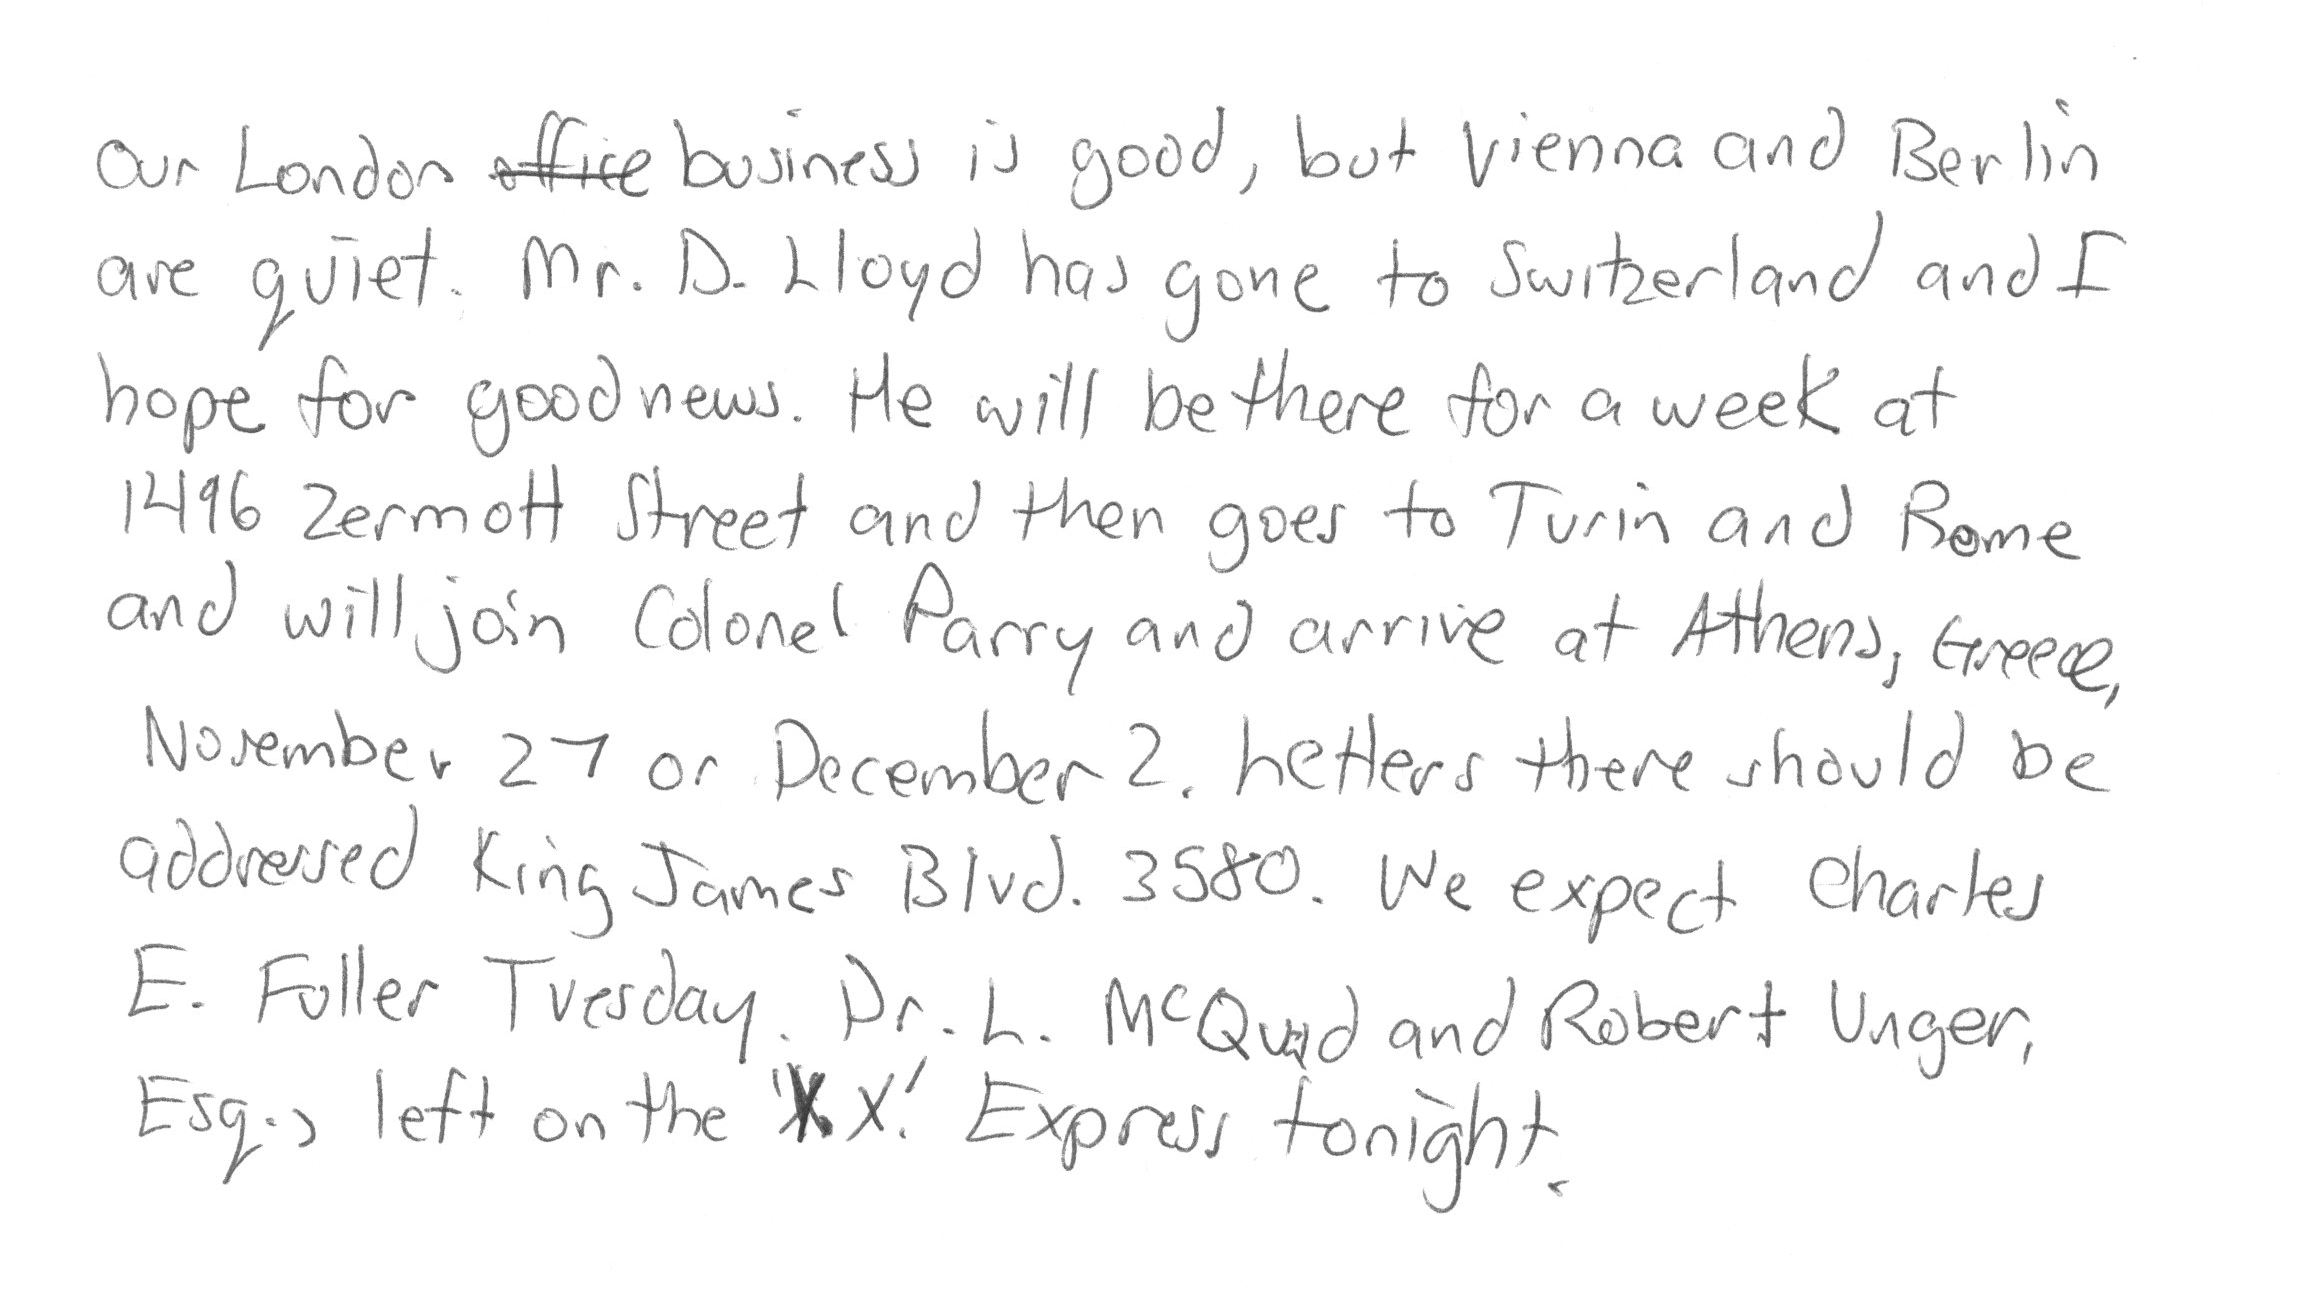 Our London ~~office~~ business is good, but Vienna and Berlin
are quiet. Mr. D. Lloyd has gone to Switzerland and I
hope for good news. He will be there for a week at
1496 Zermott Street and then goes to Turin and Rome
and will join Colonel Parry and arrive at Athens, Greece,
November 27 or December 2. Letters there should be
addressed King James Blvd. 3580. We expect Charles
E. Fuller Tuesday. Dr. L. McQuaid and Robert Unger,
Esq., left on the "X.X." Express tonight.